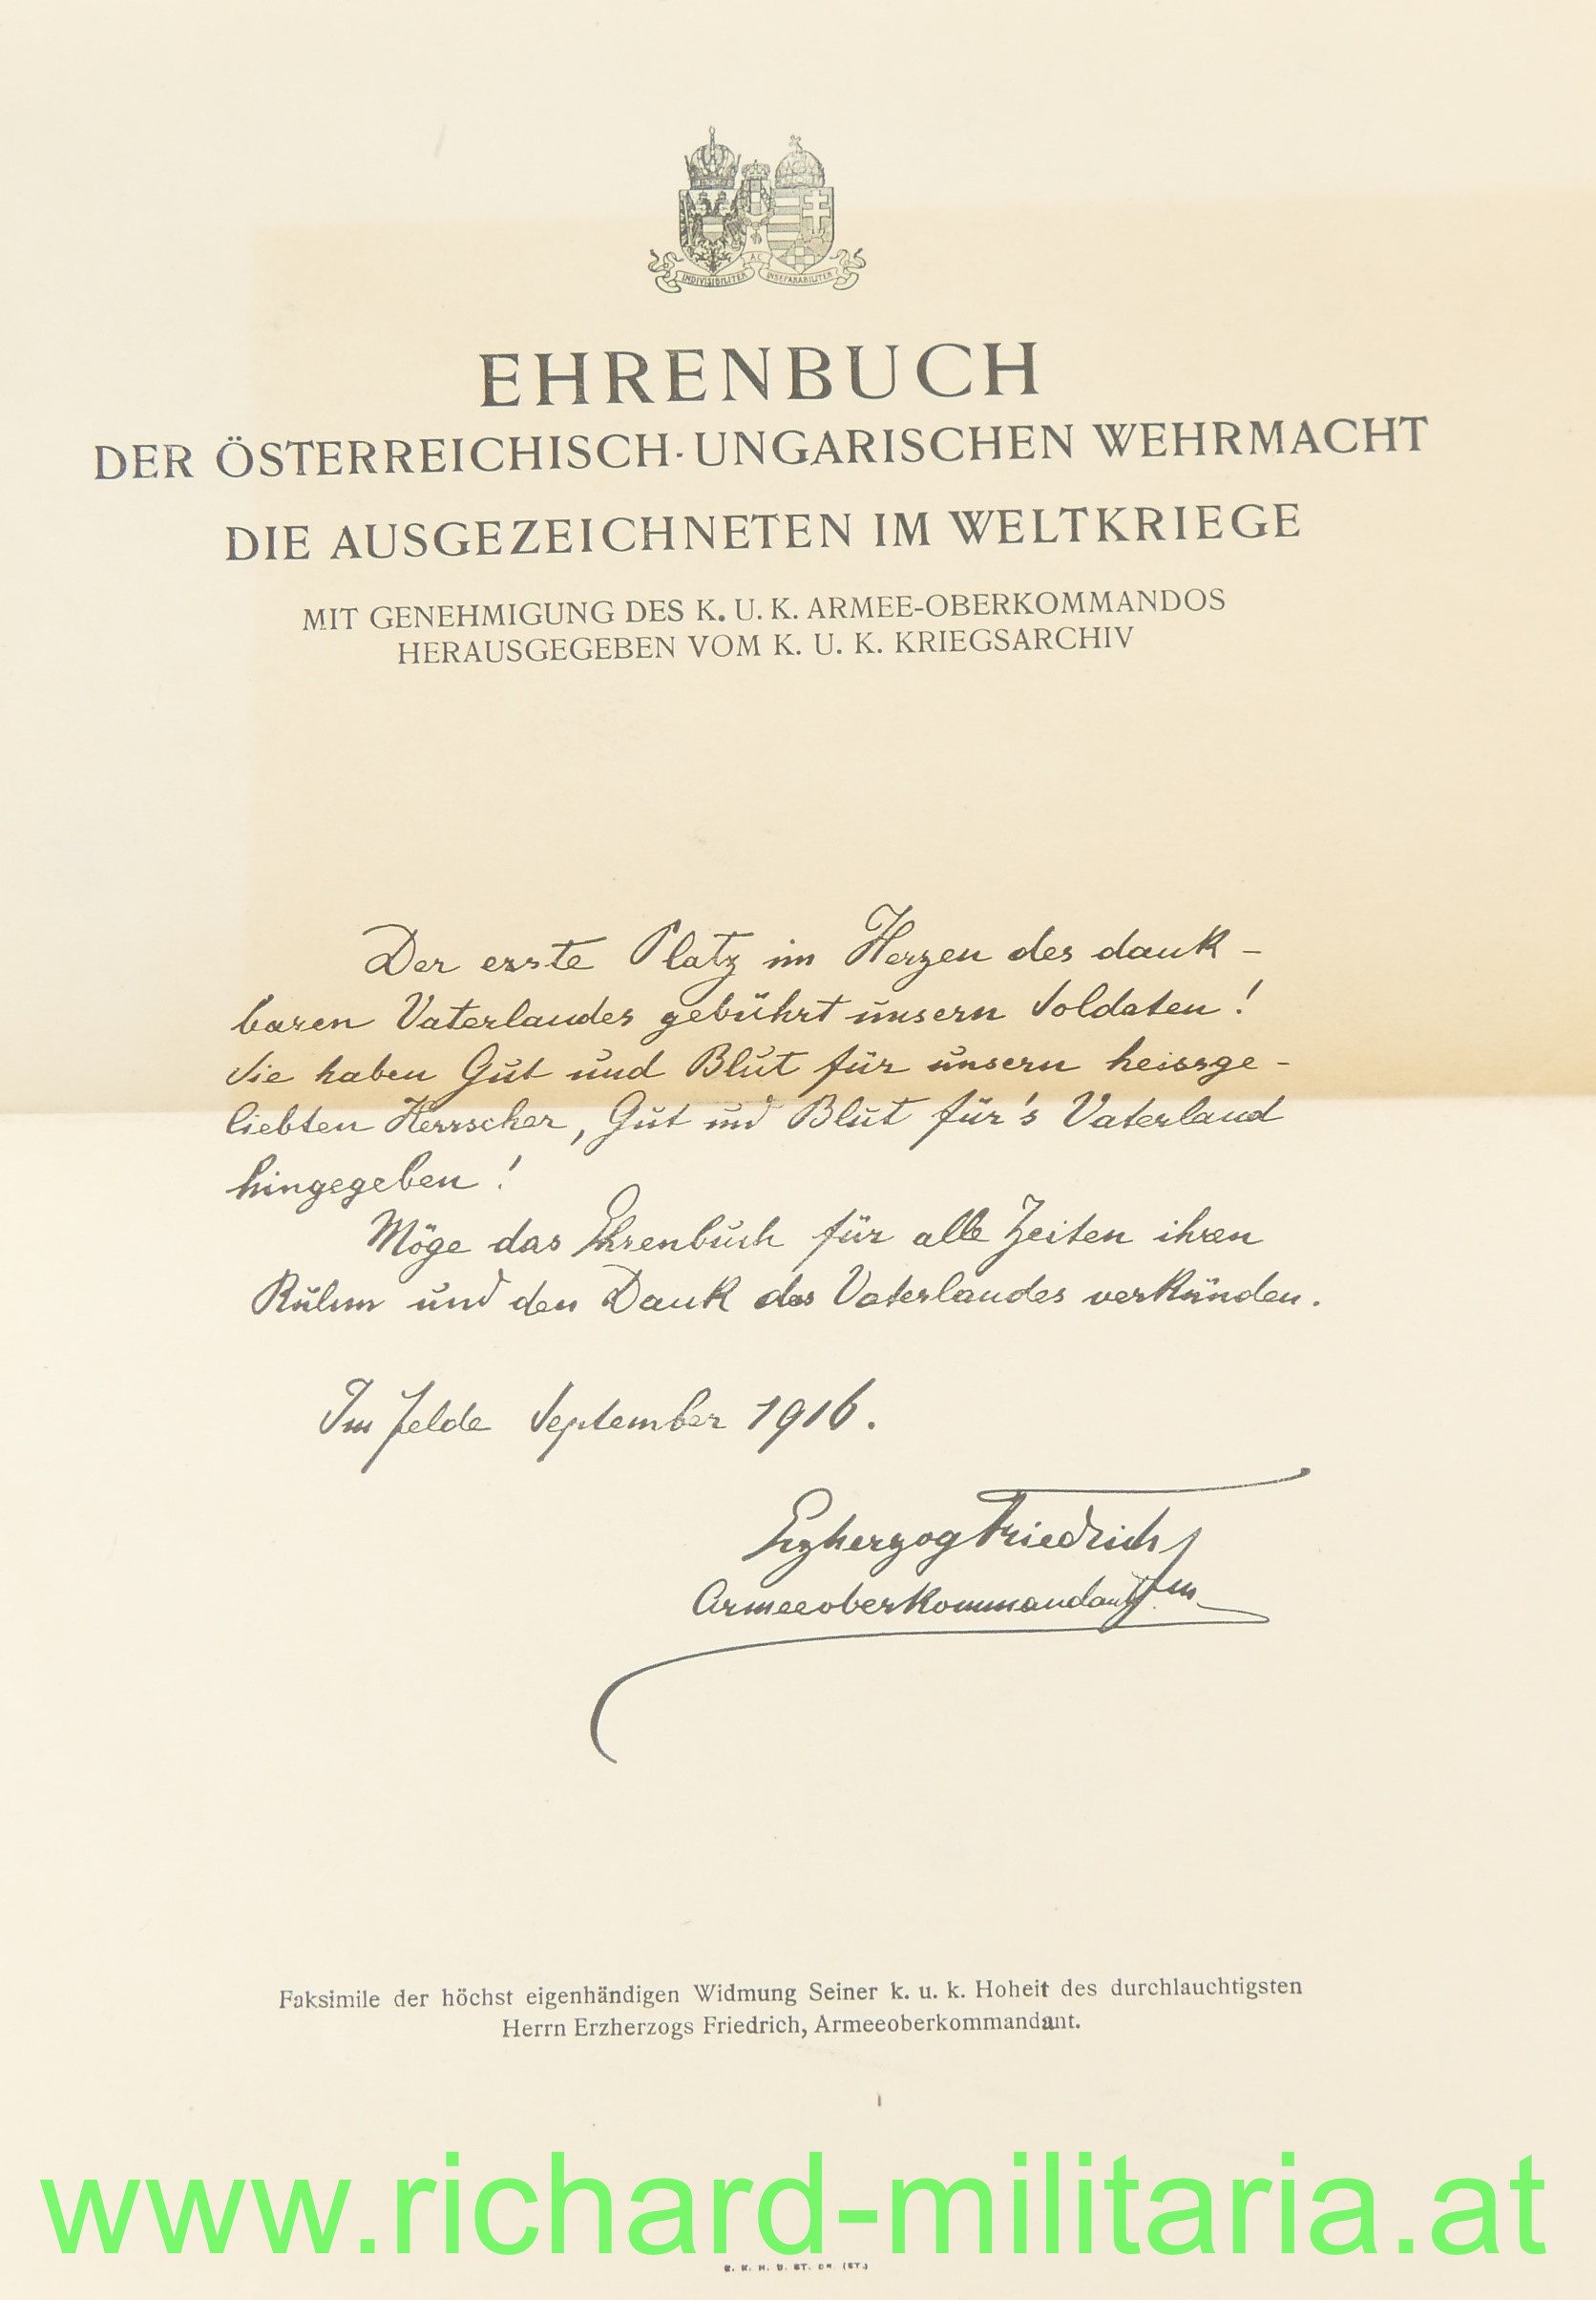 INDIVISIBILITER AC INSEPARABILITER
EHRENBUCH
DER ÖSTERREICHISCH-UNGARISCHEN WEHRMACHT
DIE AUSGEZEICHNETEN IM WELTKRIEGE
MIT GENEHMIGUNG DES K. U. K. ARMEE-OBERKOMMANDOS
HERAUSGEGEBEN VOM K. U. K. KRIEGSARCHIV
Der erste Platz im Herzen des dank-
baren Vaterlandes gebührt unsern Soldaten!
Sie haben Gut und Blut für unsern heissge-
liebten Herrscher, Gut und Blut für's Vaterland
hingegeben!
Möge das Ehrenbuch für alle Zeiten ihren
Ruhm und den Dank des Vaterlandes verkünden.
Im Felde September 1916.
Erzherzog Friedrich
Armeeoberkommandant
Faksimile der höchst eigenhändigen Widmung Seiner k. u. k. Hoheit des durchlauchtigsten
Herrn Erzherzogs Friedrich, Armeeoberkommandant.
www.richard-militaria.at
K. K. H. U. ST. DR. (ST.)